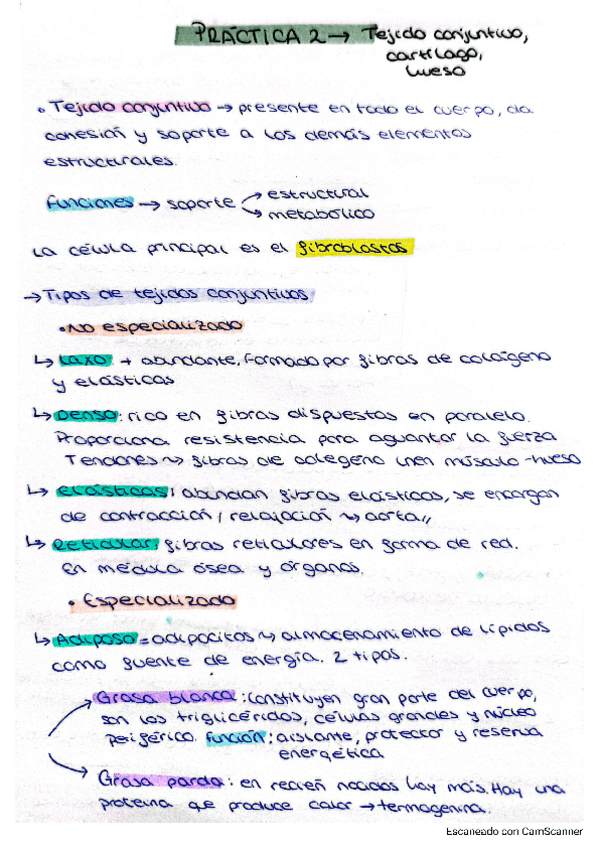 PRÁCTICA 2 → Tejido conjuntivo,
cartílago,
hueso
• Tejido conjuntivo → presente en todo el cuerpo, da
cohesión y soporte a los demás elementos
estructurales.
Funciones → soporte → estructural
→ metabólico
La célula principal es el fibroblastos
→ Tipos de tejidos conjuntivos
• No especializado
↳ Laxo → abundante, formado por fibras de colágeno
y elásticas
↳ Denso: rico en fibras dispuestas en paralelo.
Proporciona resistencia para aguantar la fuerza
Tendones ~> fibras de colageno unen músculo-hueso
↳ elásticas: abundan fibras elásticas, se encargan
de contracción / relajación ~> aorta,,
↳ Reticular: fibras reticulares en forma de red.
En médula ósea y órganos.
• Especializado
↳ Adiposo = adipocitos ~> almacenamiento de lípidos
como fuente de energía. 2 tipos.
Grasa blanca: Constituyen gran parte del cuerpo,
son los triglicéridos, células grandes y núcleo
periférico. Función: aislante, protector y reserva
energética
Grasa parda: en recién nacidos hay más. Hay una
proteína que produce calor → termogenina.
Escaneado con CamScanner